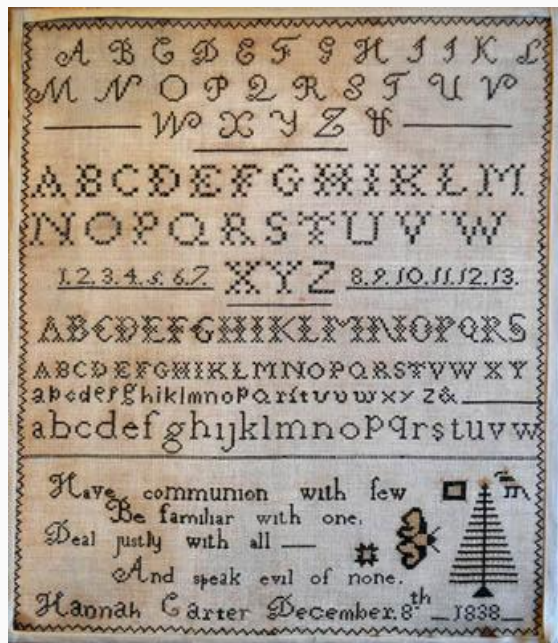 A B C D E F G H I J K L
M N O P Q R S T U V
W X Y Z &
A B C D E F G H I K L M
N O P Q R S T U V W
1.2.3.4.5.6.7. X Y Z 8.9.10.11.12.13.
A B C D E F G H I K L M N O P Q R S
A B C D E F G H I K L M N O P Q R S T V W X Y
a b c d e f g h i k l m n o p q r s t u v w x y z &
a b c d e f g h i j k l m n o p q r s t u v w
Have communion with few
Be familiar with one.
Deal justly with all
And speak evil of none.
Hannah Carter December. 8th 1838